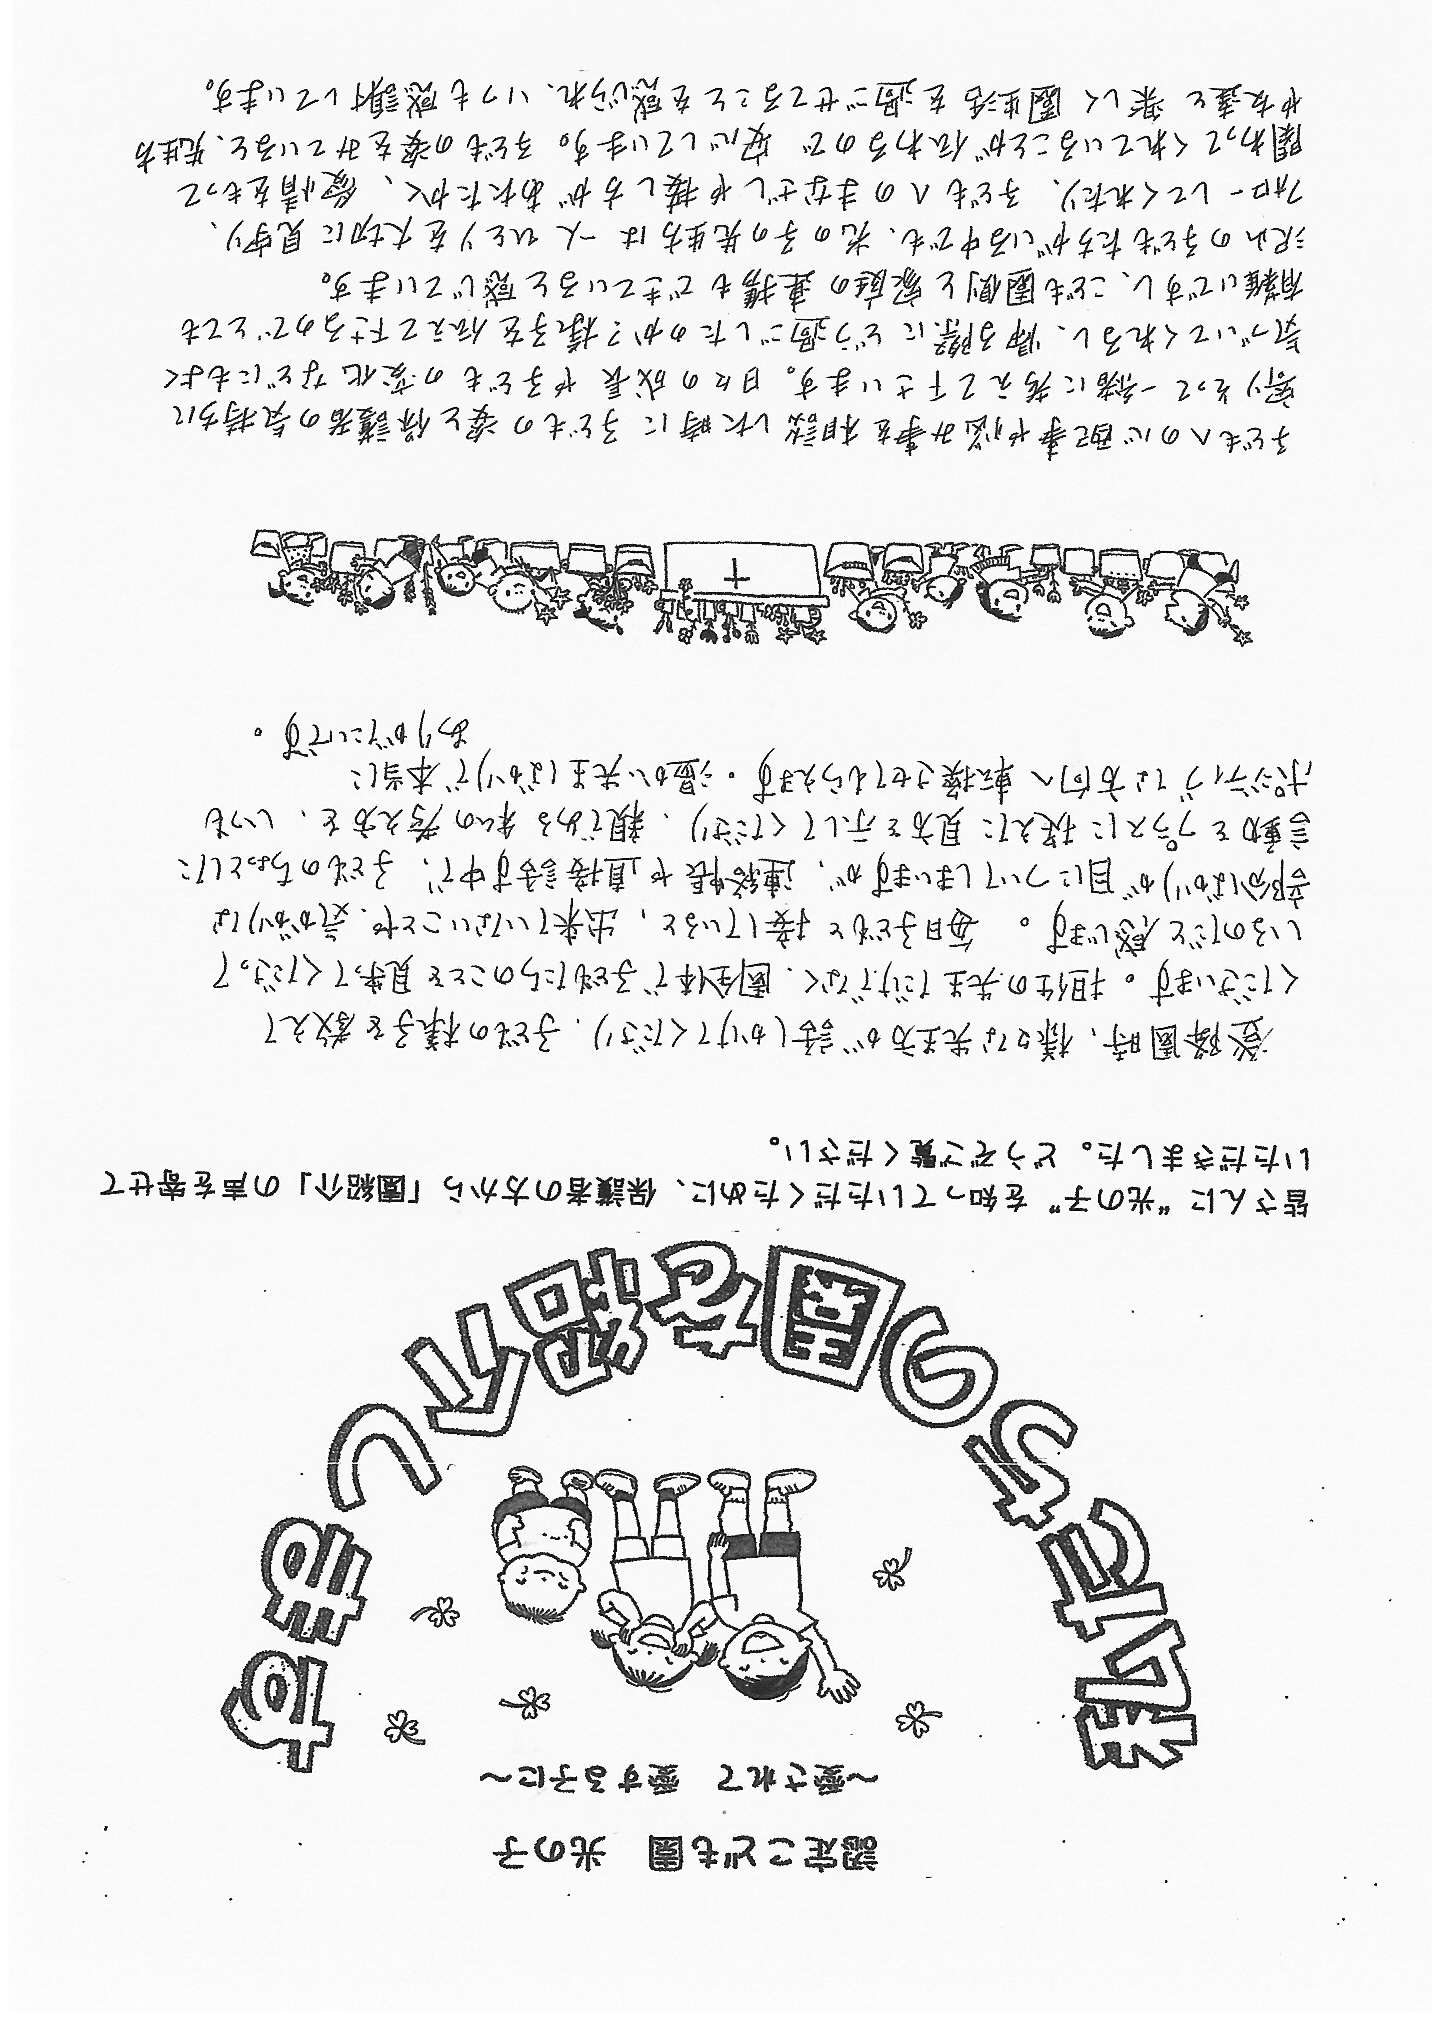 認定こども園　光の子
～愛されて　愛する子に～
私たちの園を紹介します
皆さんに"光の子"を知っていただくために、保護者の方から「園紹介」の声を寄せて
いただきました。どうぞご覧ください。
登降園時、様々な先生方が話しかけてくださり、子どもの様子を教えて
くださいます。担任の先生だけでなく、園全体で子どもたちのことを見守ってくださって
いるのだと感じます。毎日子どもと接していると、出来ていないことや、気がかりな
部分ばかりが目についてしまいますが、連絡帳や直接話す中で、子どものちょっとした
言動をプラスに捉えた見方を示してくださり、親である私の考え方を、いつも
ポジティブな方向へ転換させてもらえます。温かい先生ばかりで本当に
ありがたいです。
子どもへの心配事や悩み事を相談した時に子どもの姿と保護者の気持ちに
寄りそって一緒に考えて下さいます。日々の成長や子どもの変化などにもよく
気づいてくれるし、帰る際にどう過ごしたのか？様子を伝えて下さるのでとても
有難いですし、こども園側と家庭の連携もできていると感じています。
沢山の子どもたちがいる中でも、光の子の先生方は一人ひとりを大切に見守り、
フォローしてくれたり、子どもへのまなざしや接し方があたたかく、愛情をもって
関わってくれていることが伝わるので安心しています。子どもの姿をみていると、先生方
や友達と楽しく園生活を過ごせてることを感じられ、いつも感謝しています。